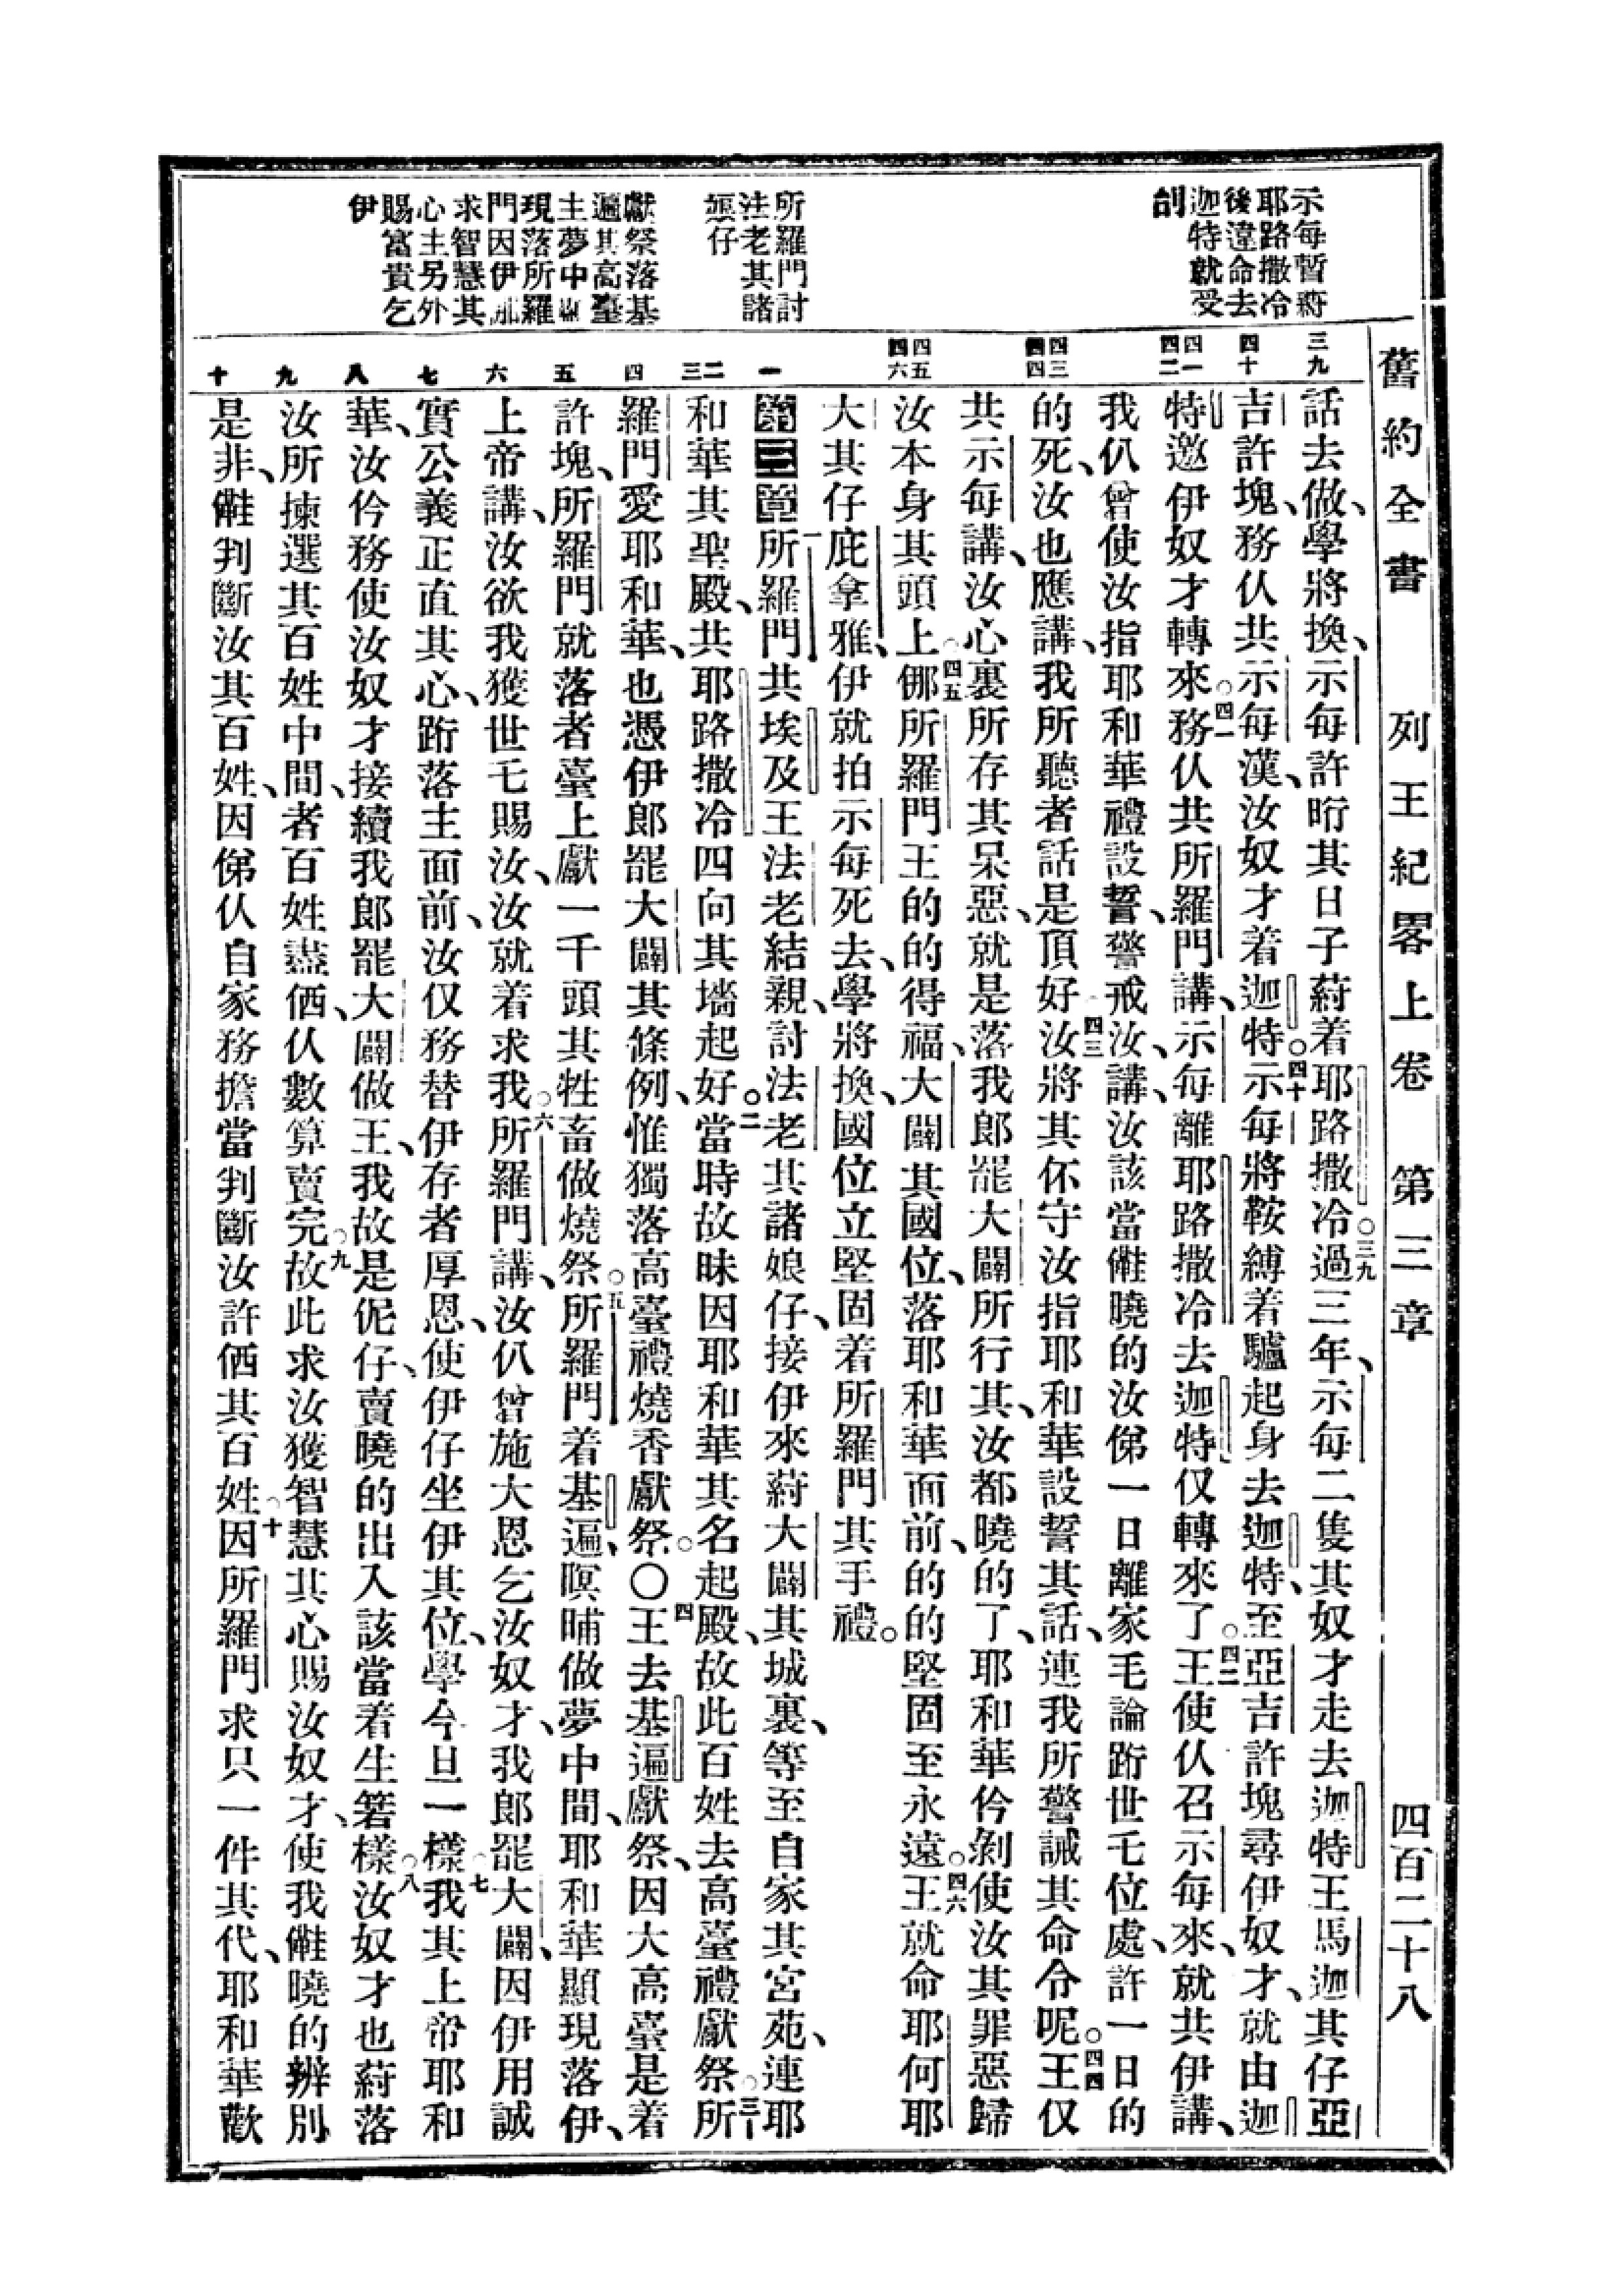 舊約全書　列王紀畧上卷　第三章　四百二十八
示每暫蒪
耶路撒冷
後違命去
迦特就受
刣
所羅門討
法老其諸
娘仔
獻祭落基
遍其高臺
主夢中顯
現落所羅
門因伊那
求智慧其
心主另外
賜富貴乞
伊
三九
四十
四一
四二
四三
四四
四五
四六
一
二
三
四
五
六
七
八
九
十
話去做、學將換、示每許昑其日子蒪着耶路撒冷○三九過三年、示每二隻其奴才走去迦特王馬迦其仔亞
吉許塊、務仈共示每漢、汝奴才着迦特○四十示每將鞍縛着驢起身去迦特、至亞吉許塊尋伊奴才、就由迦
特邀伊奴才轉來○四一務仈共所羅門講、示每離耶路撒冷去迦特仅轉來了○四二王使仈召示每來、就共伊講、
我仈曾使汝指耶和華禮設誓、警戒汝、講、汝該當㒗曉的汝俤一日離家毛論跲世乇位處、許一日的
的死、汝也應講、我所聽者話是頂好○四三汝將其伓守汝指耶和華設誓其話、連我所警誡其命令呢○四四王仅
共示每講、汝心裏所存其呆惡、就是落我郎罷大闢所行其、汝都曉的了、耶和華仱剝使汝其罪惡歸
汝本身其頭上○四五㑚所羅門王的的得福、大闢其國位、落耶和華面前、的的堅固至永遠○四六王就命耶何耶
大其仔庇拿雅、伊就拍示每死去、學將換、國位立堅固着所羅門其手禮。
第三章所羅門共埃及王法老結親、討法老其諸娘仔、接伊來蒪大闢其城裏、等至自家其宮苑、連耶
和華其聖殿、共耶路撒冷四向其墻起好○二當時故昧因耶和華其名起殿、故此百姓去高臺禮獻祭○三所
羅門愛耶和華、也憑伊郎罷大闢其條例、惟獨落高臺禮燒香獻祭○○四王去基遍獻祭、因大高臺是着
許塊、所羅門就落者臺上獻一千頭其牲畜做燒祭○五所羅門着基遍、暝晡做夢中間、耶和華顯現落伊、
上帝講、汝欲我獲世乇賜汝、汝就着求我○六所羅門講、汝仈曾施大恩乞汝奴才、我郎罷大闢、因伊用誠
實公義正直其心、跲落主面前、汝仅務替伊存者厚恩、使伊仔坐伊其位、學今旦一樣○七我其上帝耶和
華、汝仱務使汝奴才接續我郎罷大闢做王、我故是伲仔、賣曉的出入該當着生箬樣○八汝奴才也蒪落
汝所揀選其百姓中間、者百姓盡㑚、仈數算賣完○九故此求汝獲智慧其心賜汝奴才、使我㒗曉的辨別
是非、㒗判斷汝其百姓、因俤仈自家務擔當判斷汝許㑚其百姓○十因所羅門求只一件其代、耶和華歡